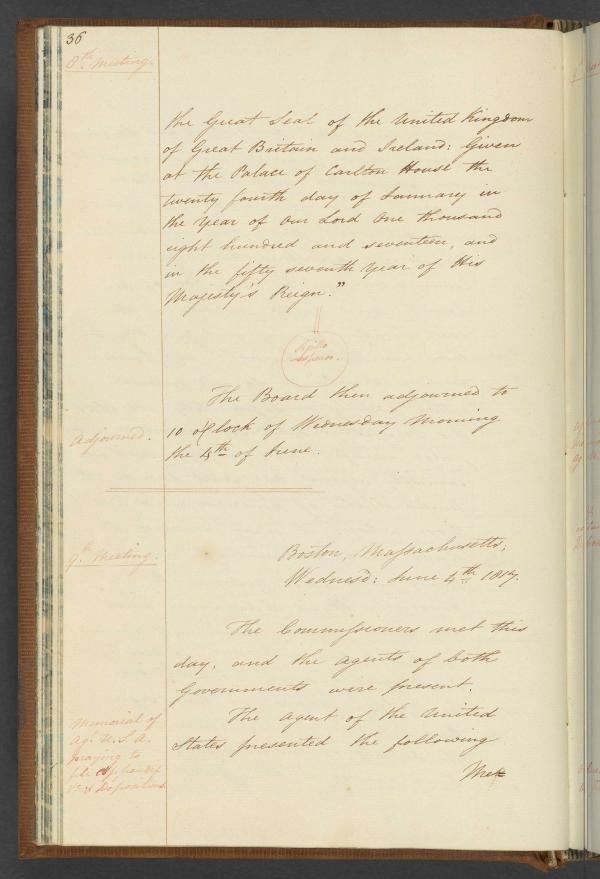 36
8th Meeting.
the Great Seal of the United Kingdom
of Great Britain and Ireland: Given
at the Palace of Carlton House the
twenty fourth day of January in
the Year of Our Lord One thousand
eight hundred and seventeen, and
in the fifty seventh Year of His
Majesty's Reign."
The Board then adjourned to
Adjourned.
10 oClock of Wednesday Morning
the 4th of June.
9th Meeting.
Boston, Massachusetts,
Wednesd: June 4th 1817.
The Commissioners met this
day, and the agents of both
Governments were present.
The agent of the United
States presented the following
Memorial of
Agt U.S.A.
praying to
file
Depositions